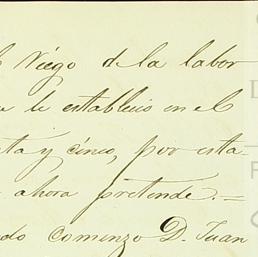 Riego de la labor
se estableció en el
ta y cinco, por esta-
ahora pretende. =
do comenzo D. Juan